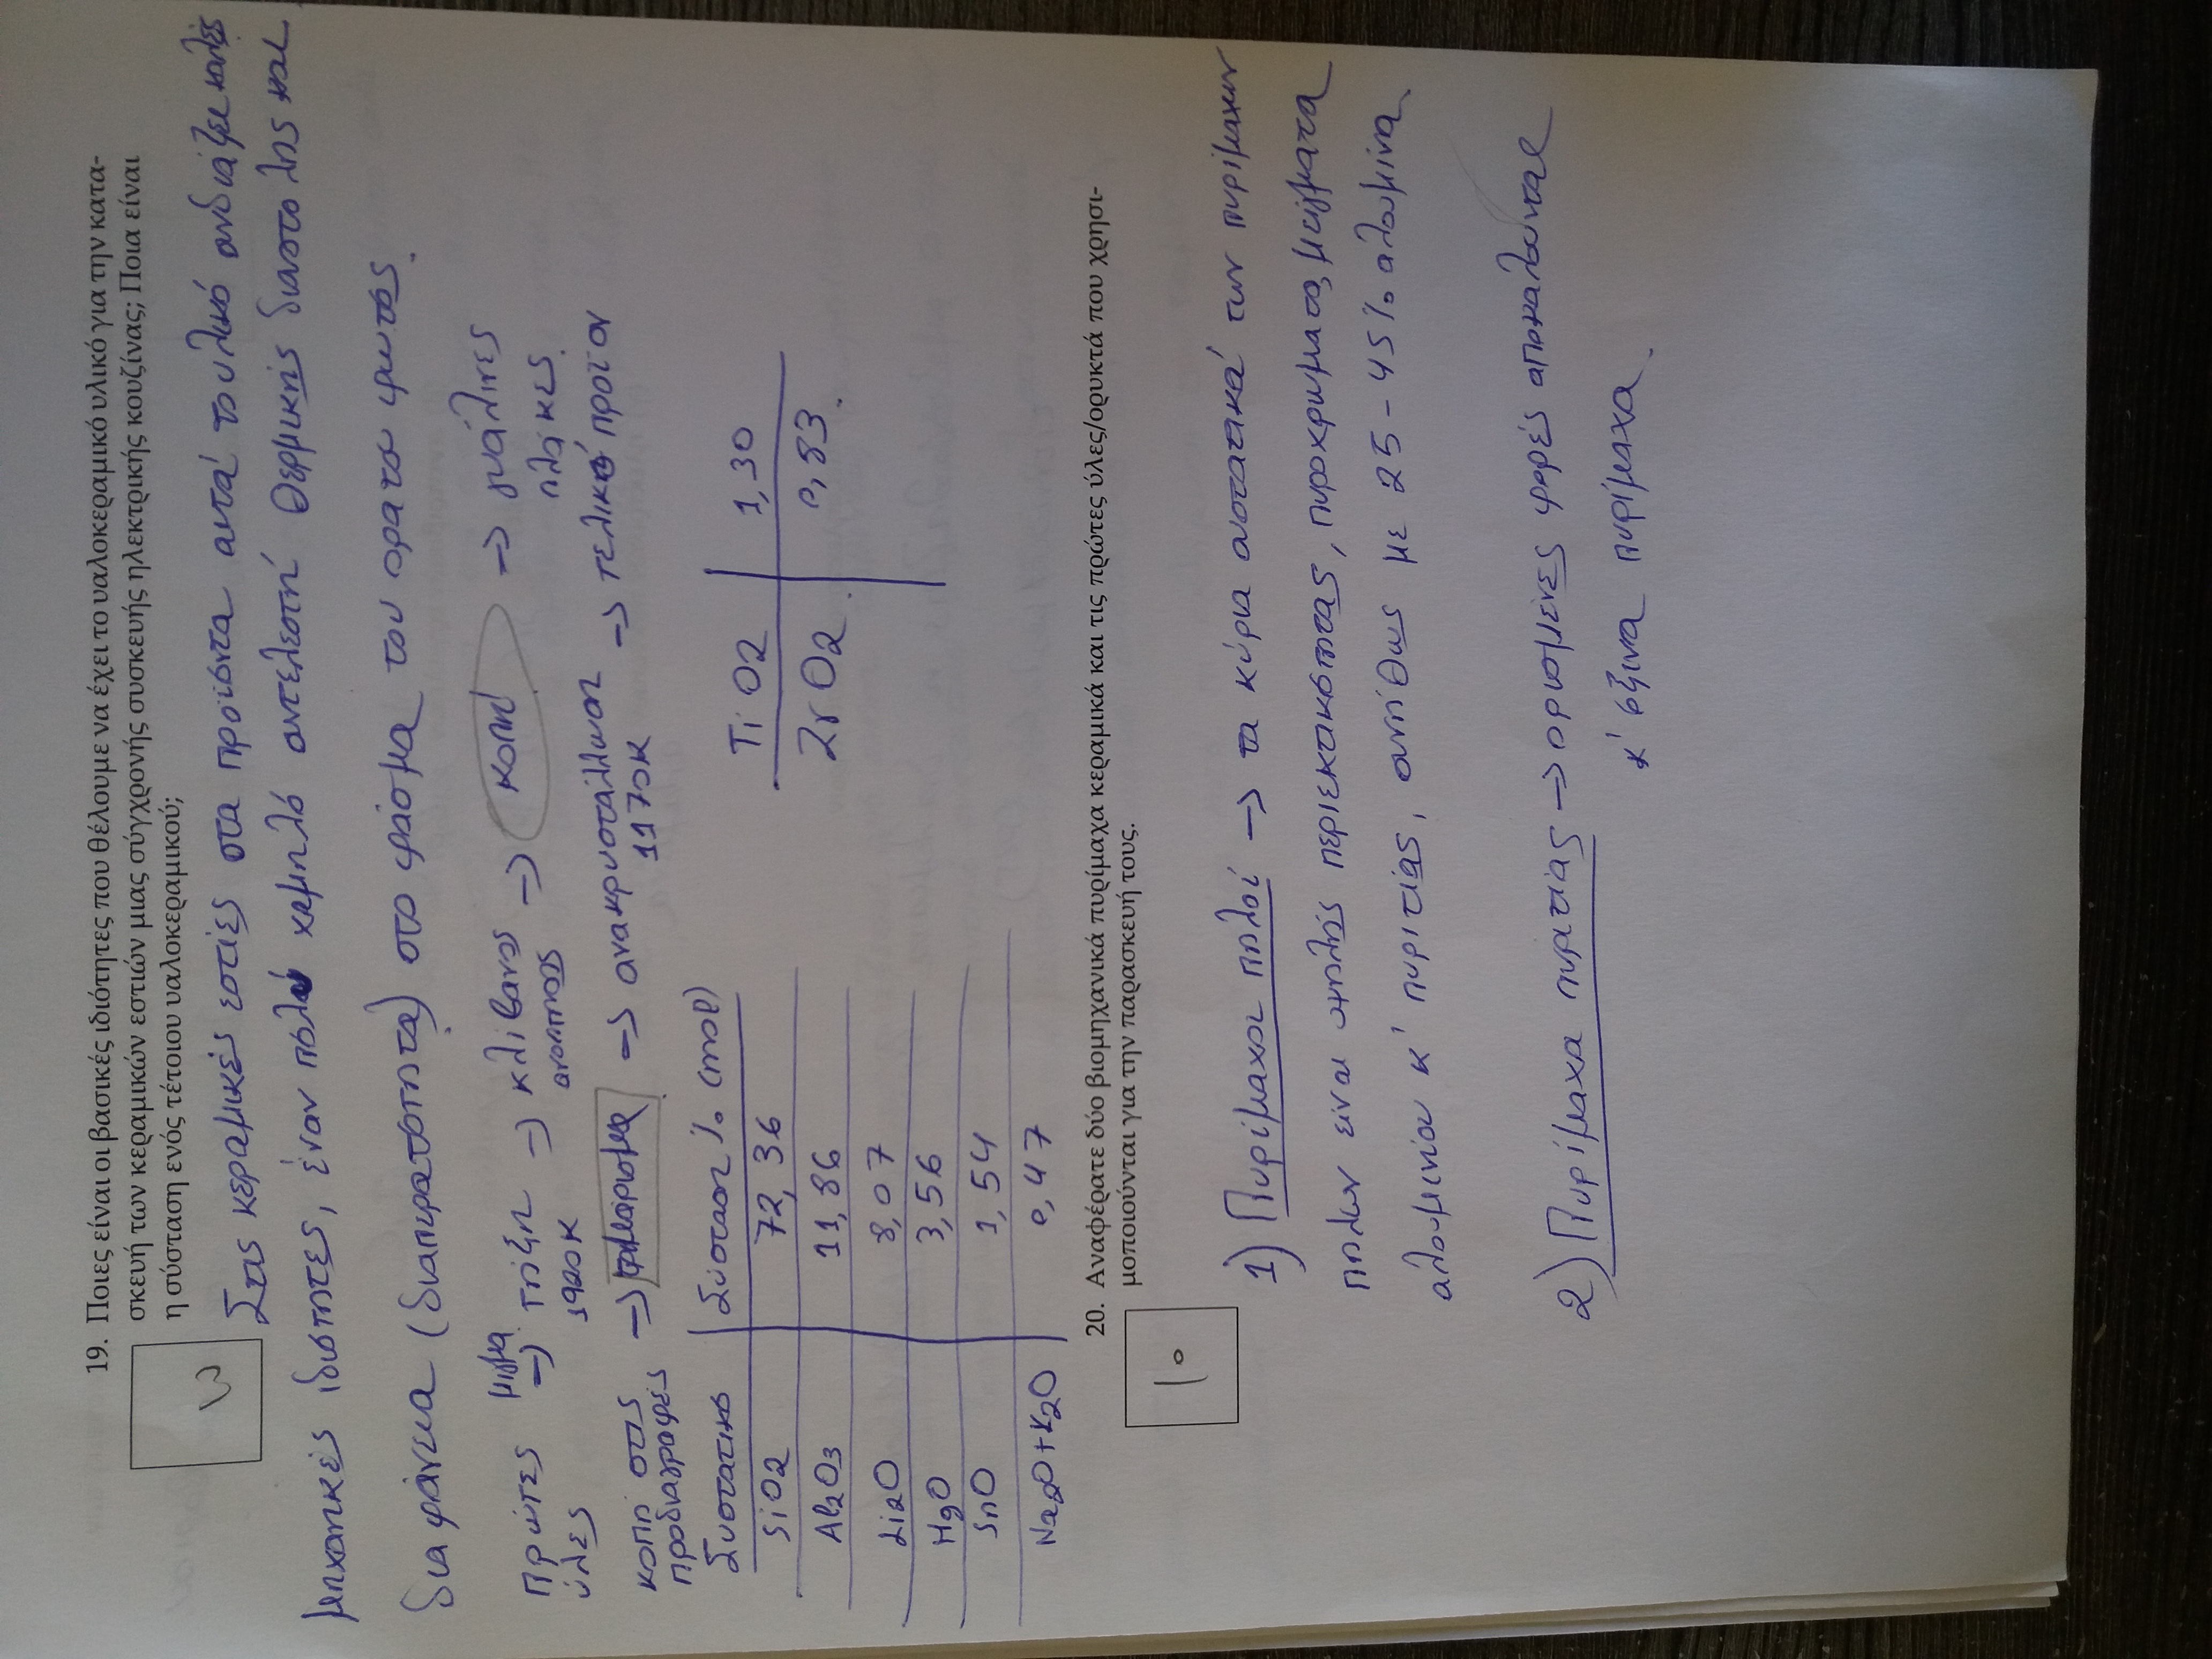 19. Ποιες είναι οι βασικές ιδιότητες που θέλουμε να έχει το υαλοκεραμικό υλικό για την κατα-
σκευή των κεραμικών εστιών μιας σύγχρονής συσκευής ηλεκτρικής κουζίνας; Ποια είναι
η σύσταση ενός τέτοιου υαλοκεραμικού;
Στις κεραμικές εστίες στα προϊόντα αυτά το υλικό συνδιάζει καλές
μηχανικές ιδιότητες, έναν πολύ χαμηλό συντελεστή θερμικής διαστολής και
διαφάνεια (διαπερατότητα) στο φάσμα του ορατού φωτός.
Πρώτες ύλες μίγμα → τήξη 1920Κ → κλίβανος ανόπτησης → κοπή → γυάλινες πλάκες
κοπή στις προδιαγραφές → φινίρισμα → ανακρυστάλλωση 1170Κ → τελικό προϊον
Συστατικό Σύσταση % (mol)
SiO2 72,36
Al2O3 11,86
Li2O 8,07
MgO 3,56
SnO 1,54
Na2O+K2O 0,47
TiO2 1,30
ZrO2 0,83.
20. Αναφέρατε δύο βιομηχανικά πυρίμαχα κεραμικά και τις πρώτες ύλες/ορυκτά που χρησι-
μοποιούνται για την παρασκευή τους.
1) Πυρίμαχοι πηλοί → τα κύρια συστατικά των πυρίμαχων
πηλών είναι υψηλής περιεκτικότητας, πυροχρώματος μείγματα
αλουμινίου κ' πυριτίας, συνήθως με 25-45% αλουμίνα.
2) Πυρίμαχα πυριτίας → ορισμένες φορές αποκαλούνται
κ' όξινα πυρίμαχα.